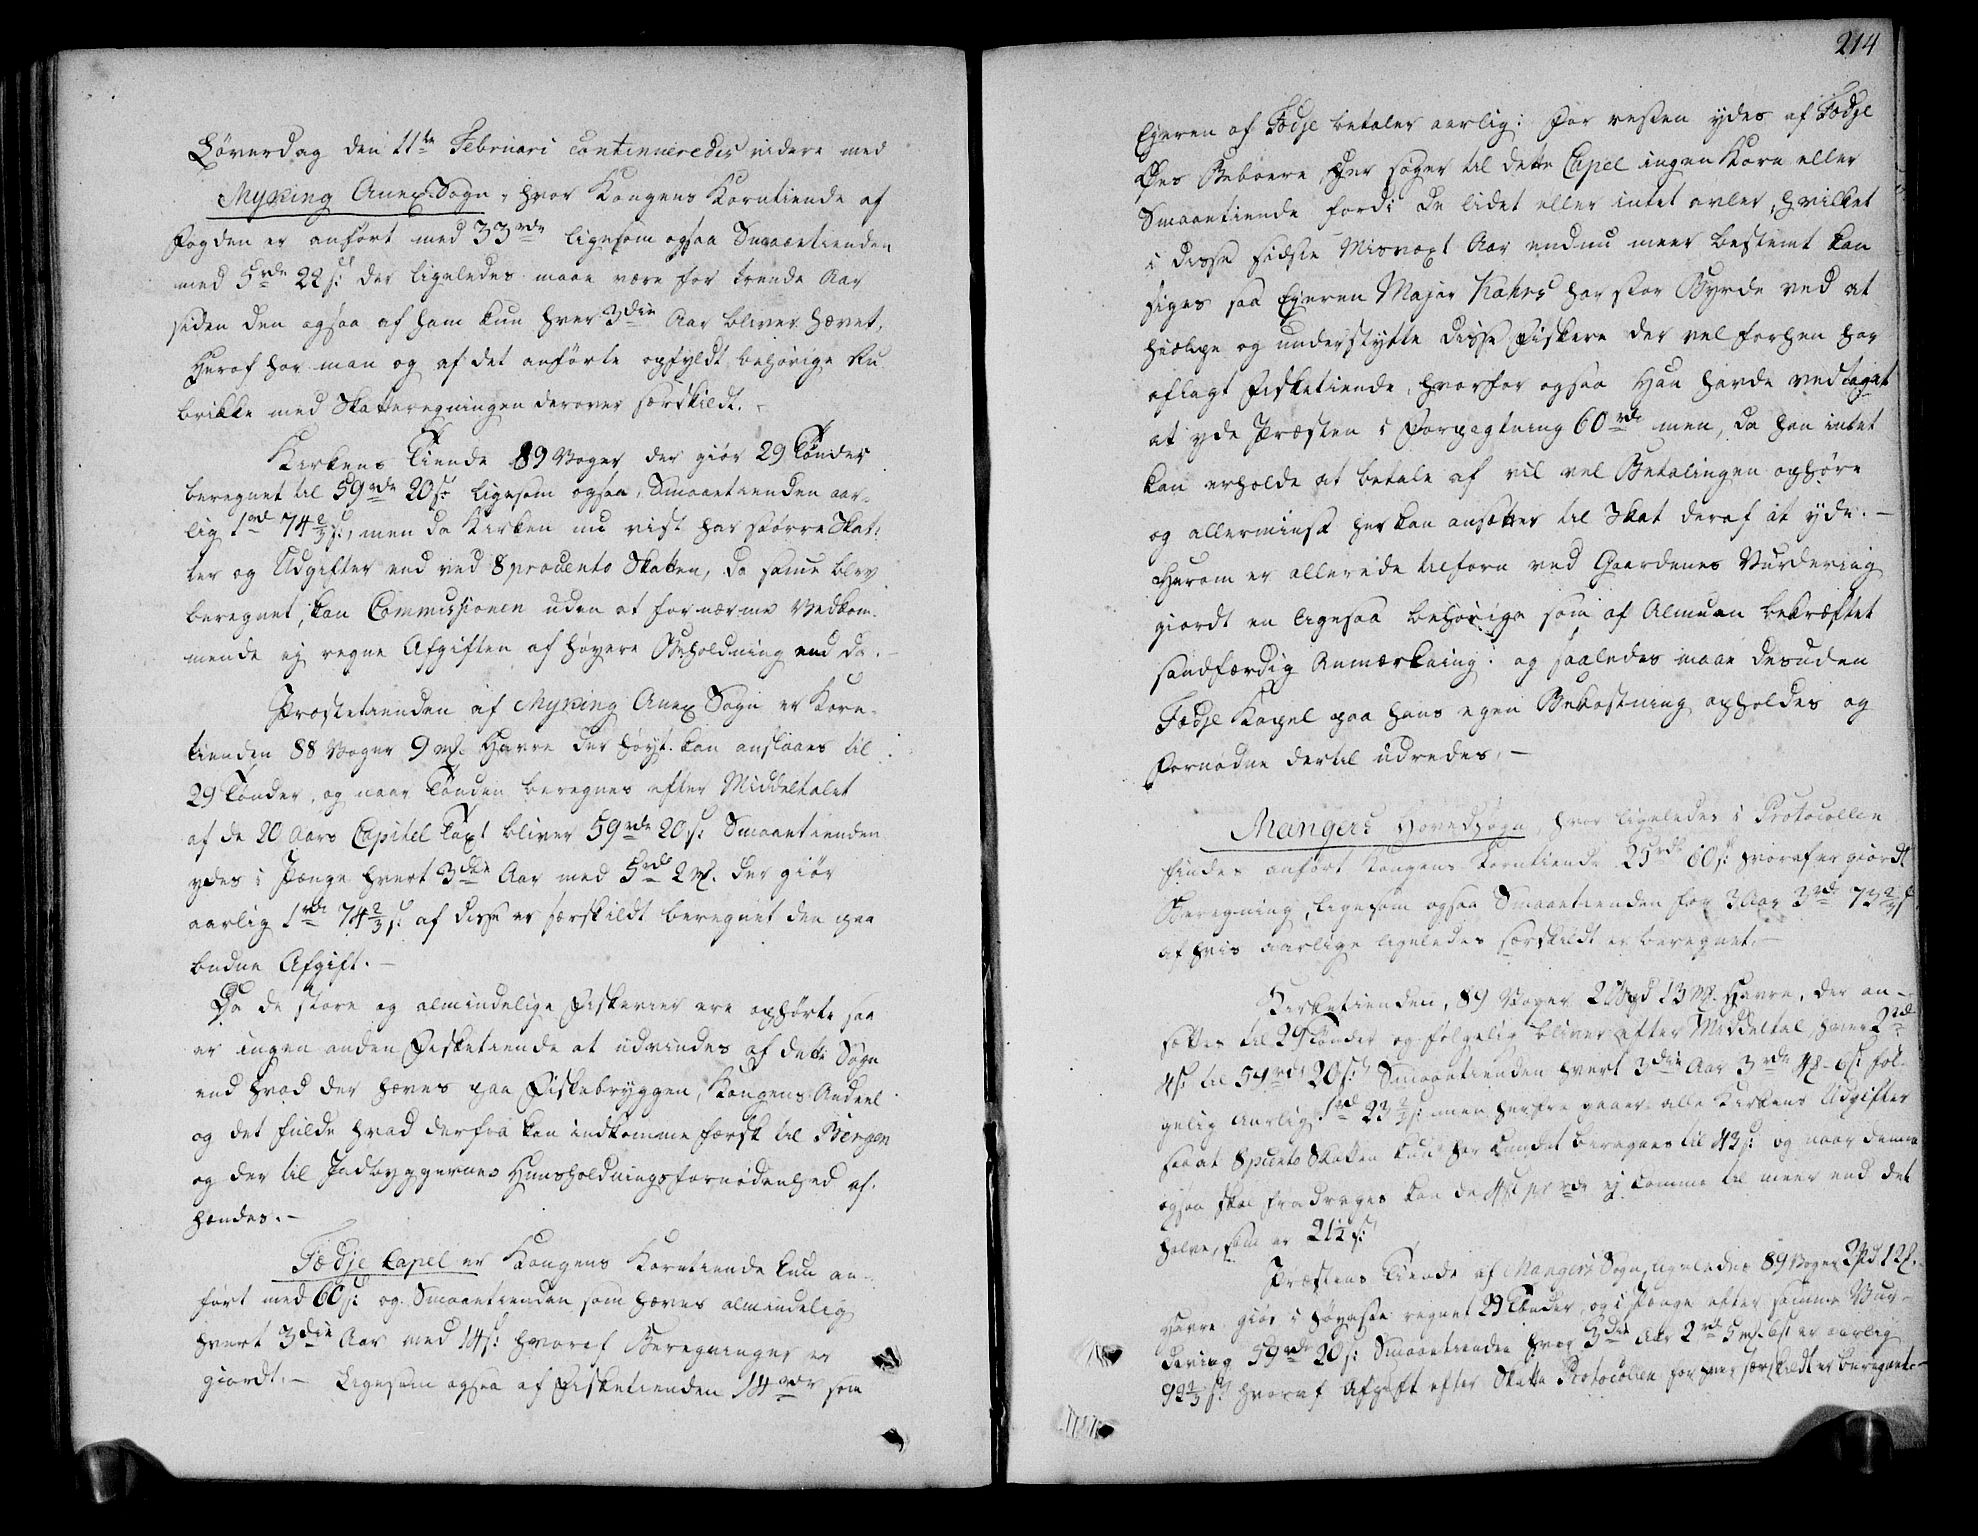 Løverdag den 11te Februari continueredes videre med
Myking Anex Sogn, hvor Kongens Korntiende af
Fogden er anført med 33rdr ligesom ogsaa Smaaetienden
med 5rdr 22 s: der ligeledes maae være for trende Aar
siden den ogsaa af ham kun hver 3die Aar bliver hævet,
Heraf har man og af det anførte opfyldt behørige Ru
brikke med Skatteregningen derover særskildt. -
Kirkens Tiende 89 Voger der giør 29 Tønder
beregnet til 59rdr 20 s: ligesom ogsaa Smaaetienden aar-
lig 1rd 74 2/3 s:, men da Kirken nu vist har større Skat-
ter og Udgifter end ved 8 procento Skatten, da samme blev
beregnet, kan Commissionen uden at fornærme Vedkom-
mende ej regne Afgiften af høyere Beholdning end da. -
Præstetienden af Myking Anex Sogn er Korn-
tienden 88 Voger 9 mk. Havre der høyt kan anslaaes til
29 Tønder, og naar Tønden beregnes efter Middeltalet
af de 20 Aars Capitel Taxt bliver 59rdr 20 s: Smaaetienden
ydes i Penge hvert 3die Aar med 5rdr 2 mk. der giør
aarlig 1rdr 74 2/3 s: af disse er særskildt beregnet den paa
budne Afgift. -
Da de store og almindelige Fiskerier ere ophørte saa
er ingen anden Fisketiende at udvindes af dette Sogn
end hvad der hæves paa Fiskebryggen, Kongens Andeel
og det fulde hvad derfra kan indkomme færsk til Bergen
og der til Indbyggernes Huusholdningsfornødenhed af-
hændes. -
Fædje Capel er Kongens Korntiende kun an-
ført med 60 s: og Smaaetienden som hæves almindelig
hvert 3die Aar med 14 s: hvoraf Beregninger er
giordt. - Ligesom ogsaa af Fisketienden 14 rdr som
214
Ejeren af Fædje betaler aarlig: For resten ydes af Fædje
Øes Beboere her søger til dette Capel ingen Korn eller
Smaaetiende fordi de lidet eller intet avler, hvilket
i disse sidste Misvæxt Aar endnu meer bestemt kan
siges saa Ejeren Major Kahrs har stor Byrde ved at
hielpe og understytte disse Fiskere der vel forhen har
aflagt Fisketiende, hvorfor ogsaa Han havde vedtaget
at yde Præsten i Forpagtning 60rdr men, da han intet
kan erholde at betale af vil vel Betalingen ophøre
og allermindst her kan ansættes til Skat deraf at yde. -
Herom er allerede tilforn ved Gaardenes Vurdering
giordt en ligesaa behørige som af Almuen bekræftet
sandfærdig Anmærkning: og saaledes maae desuden
Fædje Kapel paa hans egen Bekostning opholdes og
Fornødne dertil udredes, -
Mangers Hovedsogn, hvor ligeledes i Protocollen
findes anført Kongens Korntiende 25rdr 60 s: hvoraf er giordt
Beregning, ligesom ogsaa Smaaetienden for 3 Aar 3rd 73 2/3 s
af hvis aarlige ligeledes særskildt er beregnet. -
Kirketienden, 89 Voger 2 Bpd 13 mk. Havre, der an-
sættes til 29 Tønder og følgelig bliver efter Middeltal hver 2rd
4 s: til 59rdr 20 s: Smaaetienden hvert 3die Aar 3rdr 4 mk - 6 s: føl-
gelig aarlig 1rd 23 2/3 s: men herfra gaaer alle Kirkens Udgifter
saa at 8 pcento Skatten kun har kundet beregnes til 43 s: og naar denne
ogsaa skal fradrages kan de 4 s: pr rdr ej komme til meer end det
halve, som er 21 1/2 s:
Præstens Tiende af Mangers Sogn, ligeledes 89 Voger 2 Pd 12 mk.
Havre giør i høyeste regnet 29 Tønder, og i Penge efter samme Vur-
dering 59rdr 20 s: Smaaetienden hver 3die Aar 2rd 5 mk. 6 s: er aarlig
92 2/3 s: hvoraf Afgift efter Skatte Protocollen for hver særskildt er beregnet. -